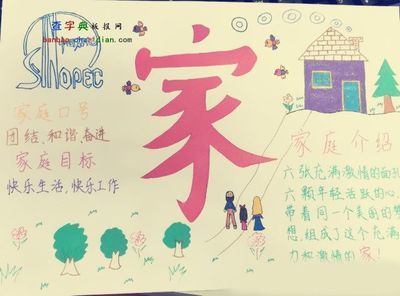 查字典板报网
banbao.chazidian.com
SINOPEC
家
家庭口号
团结、和谐、奋进
家庭目标
快乐生活、快乐工作
家庭介绍
六张充满激情的面孔
六颗年轻活跃的心,
带着同一个美国的梦
想,组成了这个充满
力和激情的家!